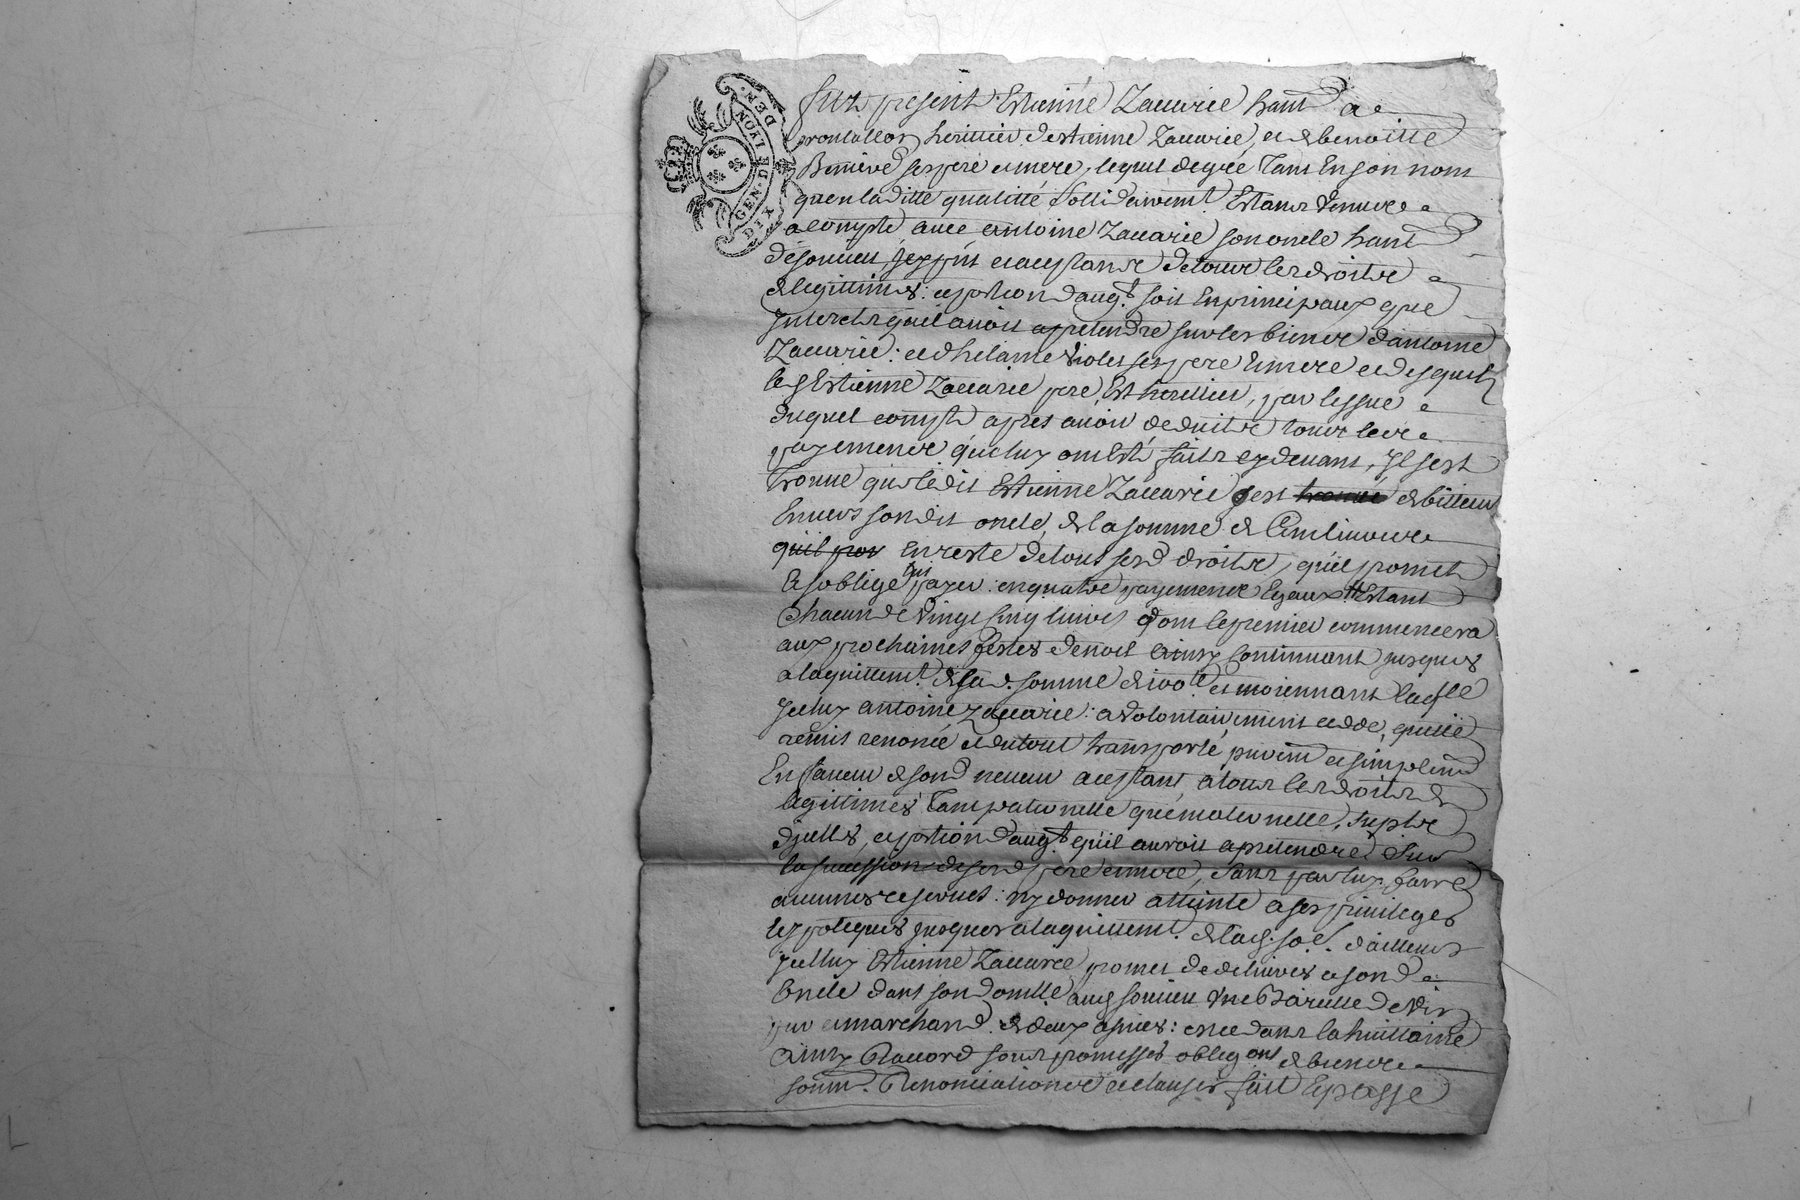 GEN. DE LYON.
DIX DEN.
fut present Estienne Zacarie hant a
heritier destienne Zacarie, et de benoitte
ses pere et mere, lequel degré tant en son nom
quen laditte qualitté sollidairement Estant venu
a compte avec antoine Zacarie son oncle hant
de soucieu, icy pnt et aceptant de tous les droits
de legittimes: et portion daugt soit en principaux que
Interets quil avoit a pretendre sur les biens dantoine
Zacarie: et dhelaine violes ses pere et mere et desquels
led Estienne Zacarie pere Est heritier, par lissue
duquel compte apres avoir deduits tous les
payements que luy ont esté faits cy devant, Il sest
trouvé que ledit Estienne Zacarie est debiteur
Envers sondit oncle, de la somme de Cent livres
quil pro En reste de tous sesd droits, quil promet
Et soblige luy payer en quatre payements Egaux Estant
Chacun de vingt cinq livres dont le premier commencera
aux prochaines festes de noel ainsy Continuant jusques
a laquittemt de lad. somme de 100 ll et moiennant laqlle
Icelluy antoine Zacarie: a volontairement cedde, quitté
remis renoncé et du tout transporté, puremt et simplemt
En faveur de sond neveu aceptant, a tous les droits de
legittimes tant paternelle que maternelle, suplt
dicelles, et portion daugt quil auroit a pretendre sur
la succession de sesd pere et mere, sans par luy faire
aucunes reserves: ny donner atteinte a ses privileges
hypoteques jusques a laquittemt de lad. soe. dailleurs
Icelluy Estienne Zacarie promet de delivrer a sond
oncle dans son domille aud soucieu une de vin
pur et marchand de deux asnées: et ce dans la huittaine
ainsy acord sous promesses obligons de biens
soum. Renonciations et clauses fait Et passé